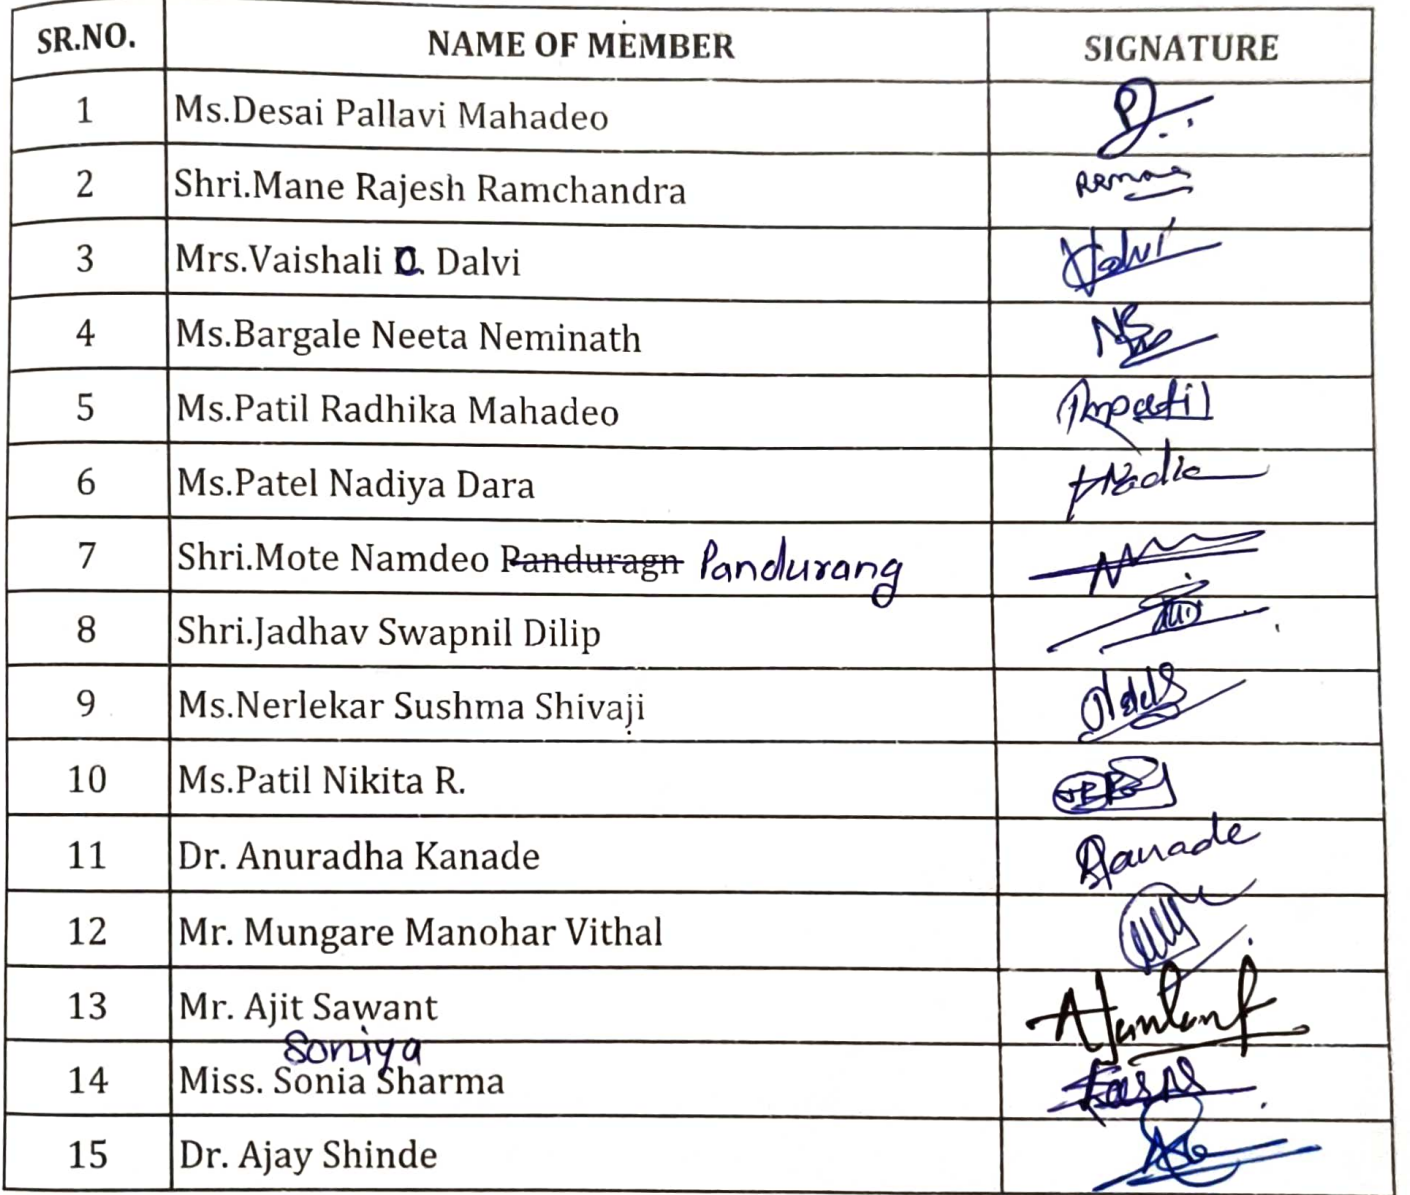 SR.NO. NAME OF MEMBER SIGNATURE
1 Ms.Desai Pallavi Mahadeo
2 Shri.Mane Rajesh Ramchandra
3 Mrs.Vaishali D. Dalvi Dalvi
4 Ms.Bargale Neeta Neminath
5 Ms.Patil Radhika Mahadeo Rmpatil
6 Ms.Patel Nadiya Dara
7 Shri.Mote Namdeo Panduragn Pandurang
8 Shri.Jadhav Swapnil Dilip
9 Ms.Nerlekar Sushma Shivaji
10 Ms.Patil Nikita R.
11 Dr. Anuradha Kanade
12 Mr. Mungare Manohar Vithal
13 Mr. Ajit Sawant
Soniya
14 Miss. Sonia Sharma
15 Dr. Ajay Shinde